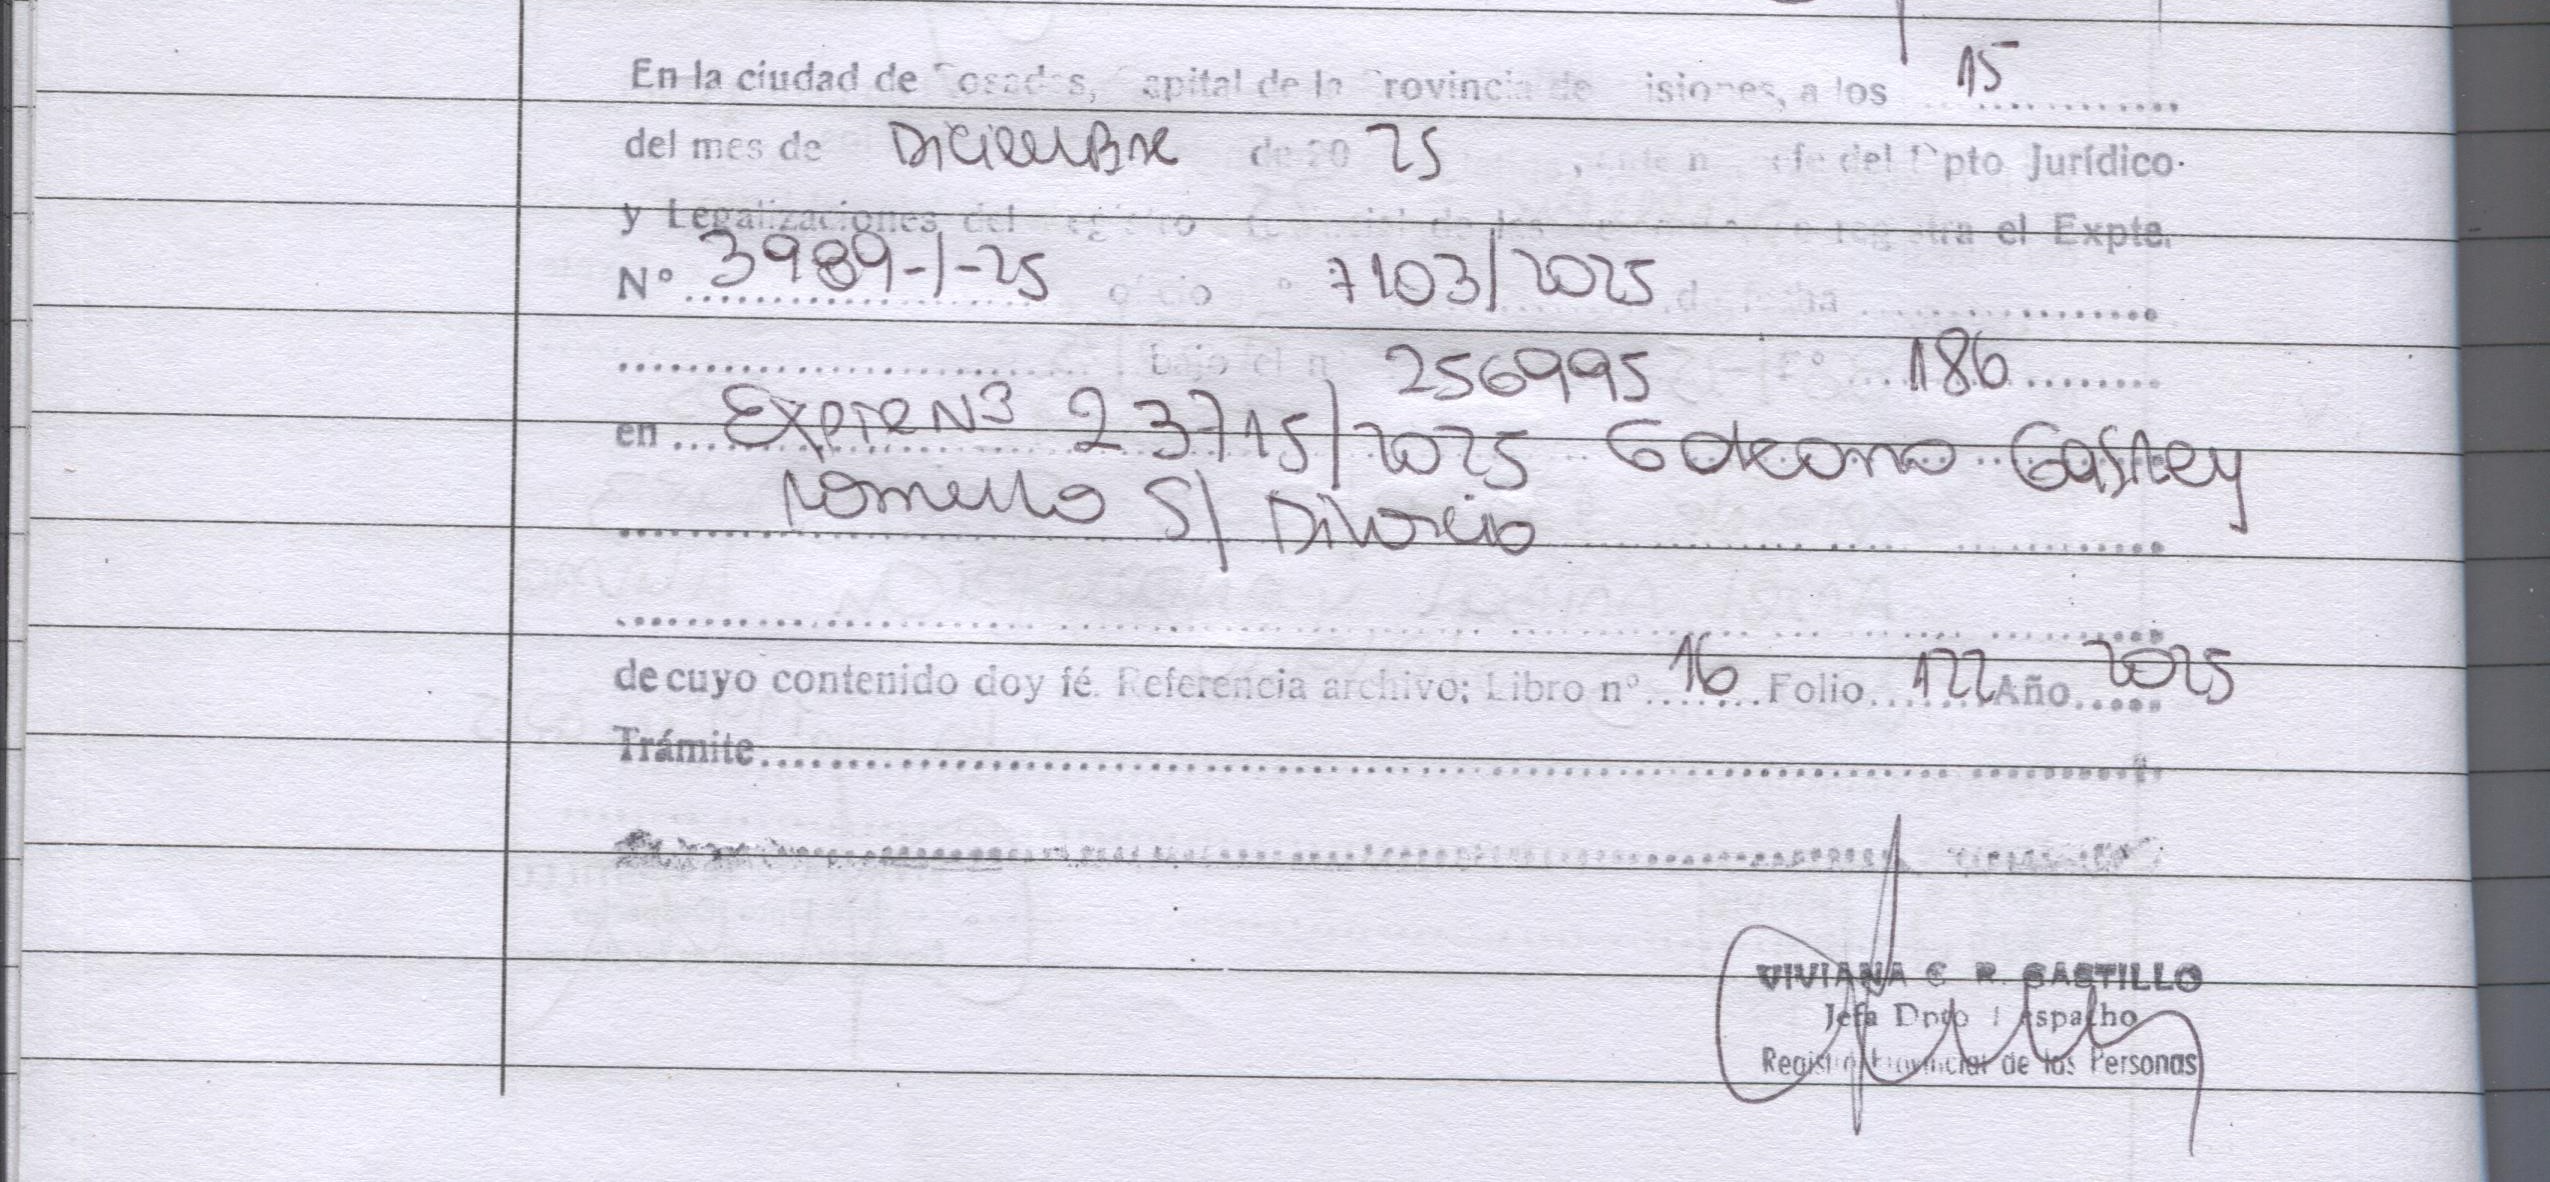 En la ciudad de Posadas, Capital de la Provincia de Misiones, a los 15
del mes de Diciembre de 20 25, ante mi, Jefe del Dpto Jurídico
y Legalizaciones del Registro Provincial de las Personas, se registra el Expte.
Nº 3989-1-25 oficio nº 7103/2025 de fecha
bajo el nº 256995 Fº 186
en Expte Nº 23715/2025
S/ Divorcio
de cuyo contenido doy fé. Referencia archivo: Libro nº 16 Folio 122 Año 2025
Trámite
VIVIANA C. R. CASTILLO
Jefa Dpto Despacho
Registro Provincial de las Personas